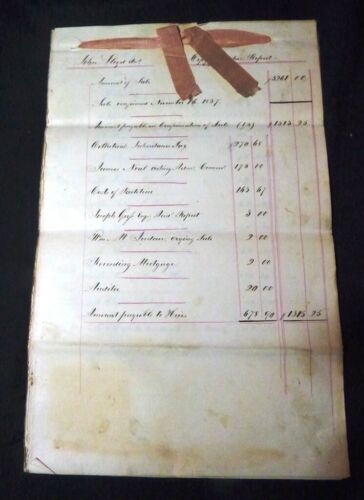 John Floyd &c. Report
Amount of Sale $5261 00
Sale confirmed November 16. 1857.
Amount payable on Confirmation of Sale (1/4) $1315 25
Collateral Inheritance Tax $270 65
James Neal acting
Costs of Partition 163 67
Joseph Esq. Report 3 00
Wm. M. crying Sale 2 00
Recording Mortgage 2 00
Auditor 20 00
Amount payable to Heirs 678 90 $1315 25